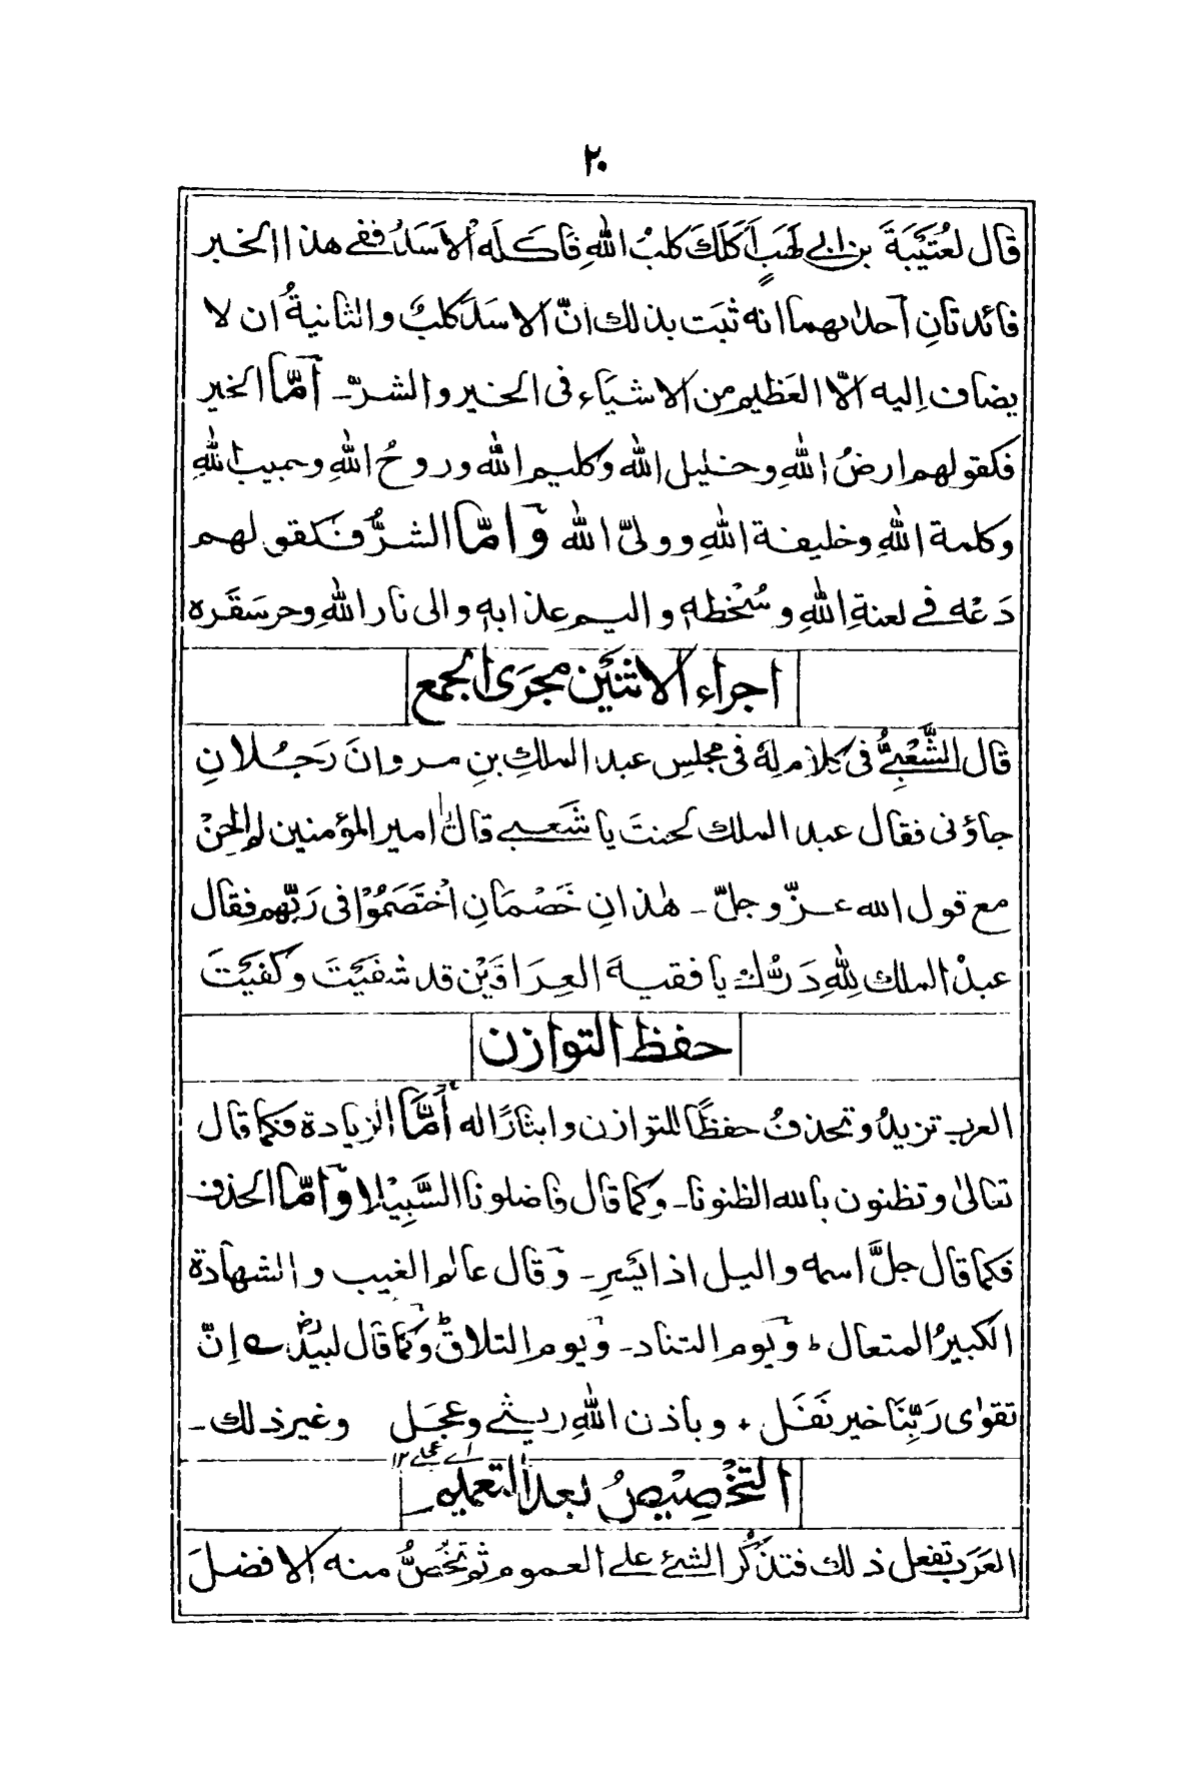 ٢٠
قال لعُتَيْبَةَ بن ابي لهَبٍ اَكَلَكَ كلبُ اللّٰهِ فاَكَلَه الاَسَدُ ففي هذا الخبر
فائدتانِ اَحدٰيهما انه ثبَت بذلك انّ الاسَدَ كلبٌ والثانيةُ ان لا
يضاف اِليه الّا العَظيم مِن الاشيَاء فى الخير والشرّ ـ اَمّا الخير
فكقولهم ارضُ اللّٰهِ وخليل اللّٰه وكليم اللّٰه وروحُ اللّٰهِ وحبيب اللّٰهِ
وكلمة اللّٰهِ وخليفة اللّٰهِ وولىّ اللّٰه وَامّا الشرُّ فكقولهم
دَعْه فى لعنةِ اللّٰهِ وسُخْطهٖ واليم عذابهٖ والى نار اللّٰهِ وحر سَقَره
اجراء الاثنَيْن مجرَى الجمع
قال الشَّعْبِىُّ فى كلام لهٗ فى مجلسِ عبد الملكِ بنِ مروانَ رَجُلانِ
جاؤنى فقال عبد الملك لحنتَ يا شَعبى قال يا امير المؤمنين لم الحنْ
مع قول الله عزّ وجلّ ـ هٰذانِ خَصْمَانِ اخْتَصَمُوْا فى رَبِّهم فقال
عبدُ الملك لِلّٰهِ دَرُّك يا فقيهَ العِرَاقَيْن قد شفَيْتَ وكفَيْتَ
حفظ التوازن
العرب تزيدُ وتحذفُ حفظًا للتوازن وايثارًا له اَمَّا الزيادة فكما قال
تعالىٰ وتظنون بالله الظنونا ـ وكما قال فاضلونا السَّبِيْلا وَامّا الحذف
فكما قال جلَّ اسمه واليل اذا يَسرِ ـ وَقال عالم الغيب والشهادة
الكبيرُ المتعال ؕ وَيوم التناد ـ وَيوم التلاق ؕ وَكما قال لبيدٌ ؎ اِنّ
تقوٰى رَبِّنَا خير نَفَل ٭ وباذن اللّٰهِ ريثى وعجَل وغير ذلك ـ
اے عجلى ١٢
التخْصِيْصُ بعد التعميم
العَرَب تفعل ذلك فتذكُر الشئ على العموم ثم تخُصُّ منه الافضلَ